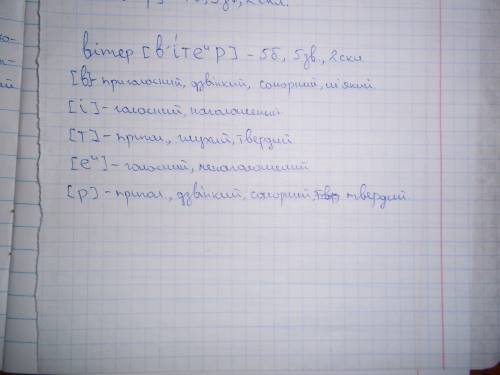 вітер [в'і́теᴵр] – 5б., 5зв., 2скл.
[в] – приголосний, дзвінкий, сонорний, м'який.
[і] – голосний, наголошений
[т] – пригол., глухий, твердий
[еᴵ] – голосний, ненаголошений
[р] – пригол., дзвінкий, сонорний, твердий.